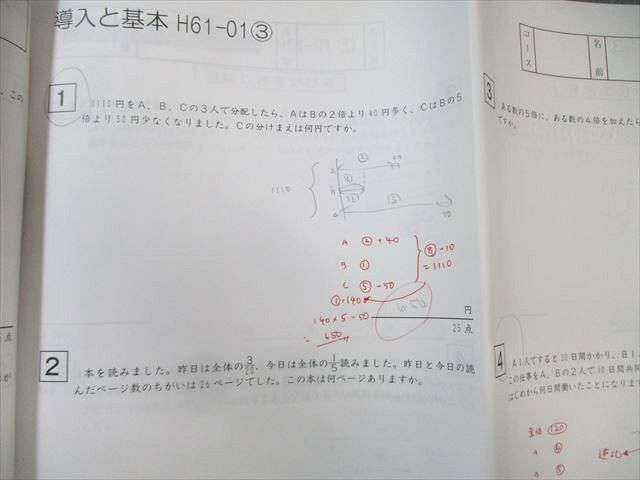 導入と基本 H61-01③
1
1110円をA、B、Cの3人で分配したら、AはBの2倍より40円多く、CはBの5
倍より50円少なくなりました。Cの分けまえは何円ですか。
1110
A ② +40
B ①
C ⑤ -50
⑧ -10
=1110
①=140
140×5-50
650
650
円
25点
2
本を読みました。昨日は全体の3/20、今日は全体の1/5読みました。昨日と今日の読
んだページ数のちがいは26ページでした。この本は何ページありますか。
コース
名前
3
ある数の5倍に、ある数の4倍を加えたら
ですか。
4
A1人ですると30日間かかり、B1
この仕事をA、Bの2人で10日間共同
はじめから何日間働いたことになりま
全体 120
A ④
逆比